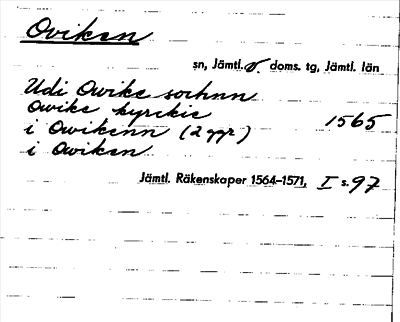 Oviken
sn, Jämtl. v. doms. tg, Jämtl. län
Udi Owike sochnn
Owike kyrckie 1565
i Owikenn (2 ggr)
i Owiken
Jämtl. Räkenskaper 1564-1571, I s. 97